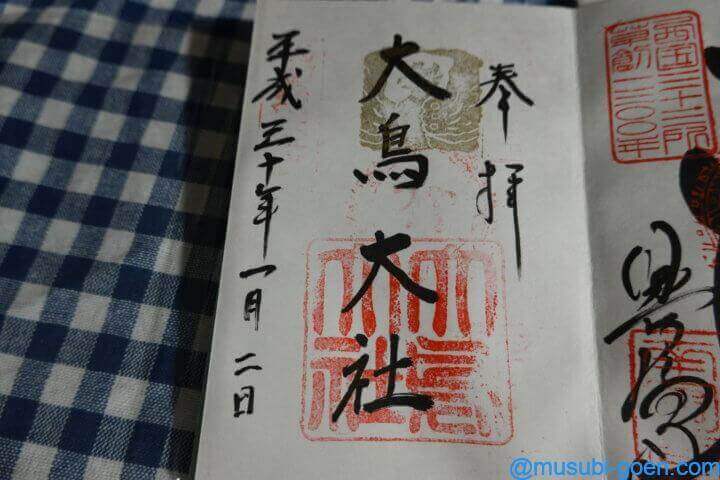 西国三十三所
草創一三〇〇年
奉拝
大鳥大社
大鳥大社
平成三十年一月二日
@musubi-goen.com